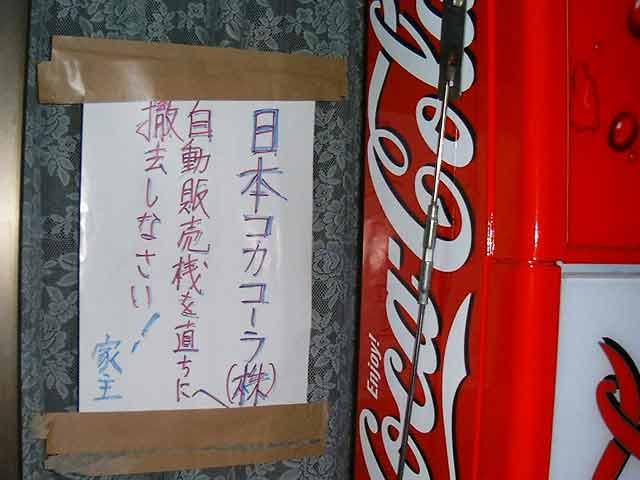 日本コカコーラ(株)へ
自動販売桟を直ちに
撤去しなさい!
家主
Enjoy!
Coca-Cola